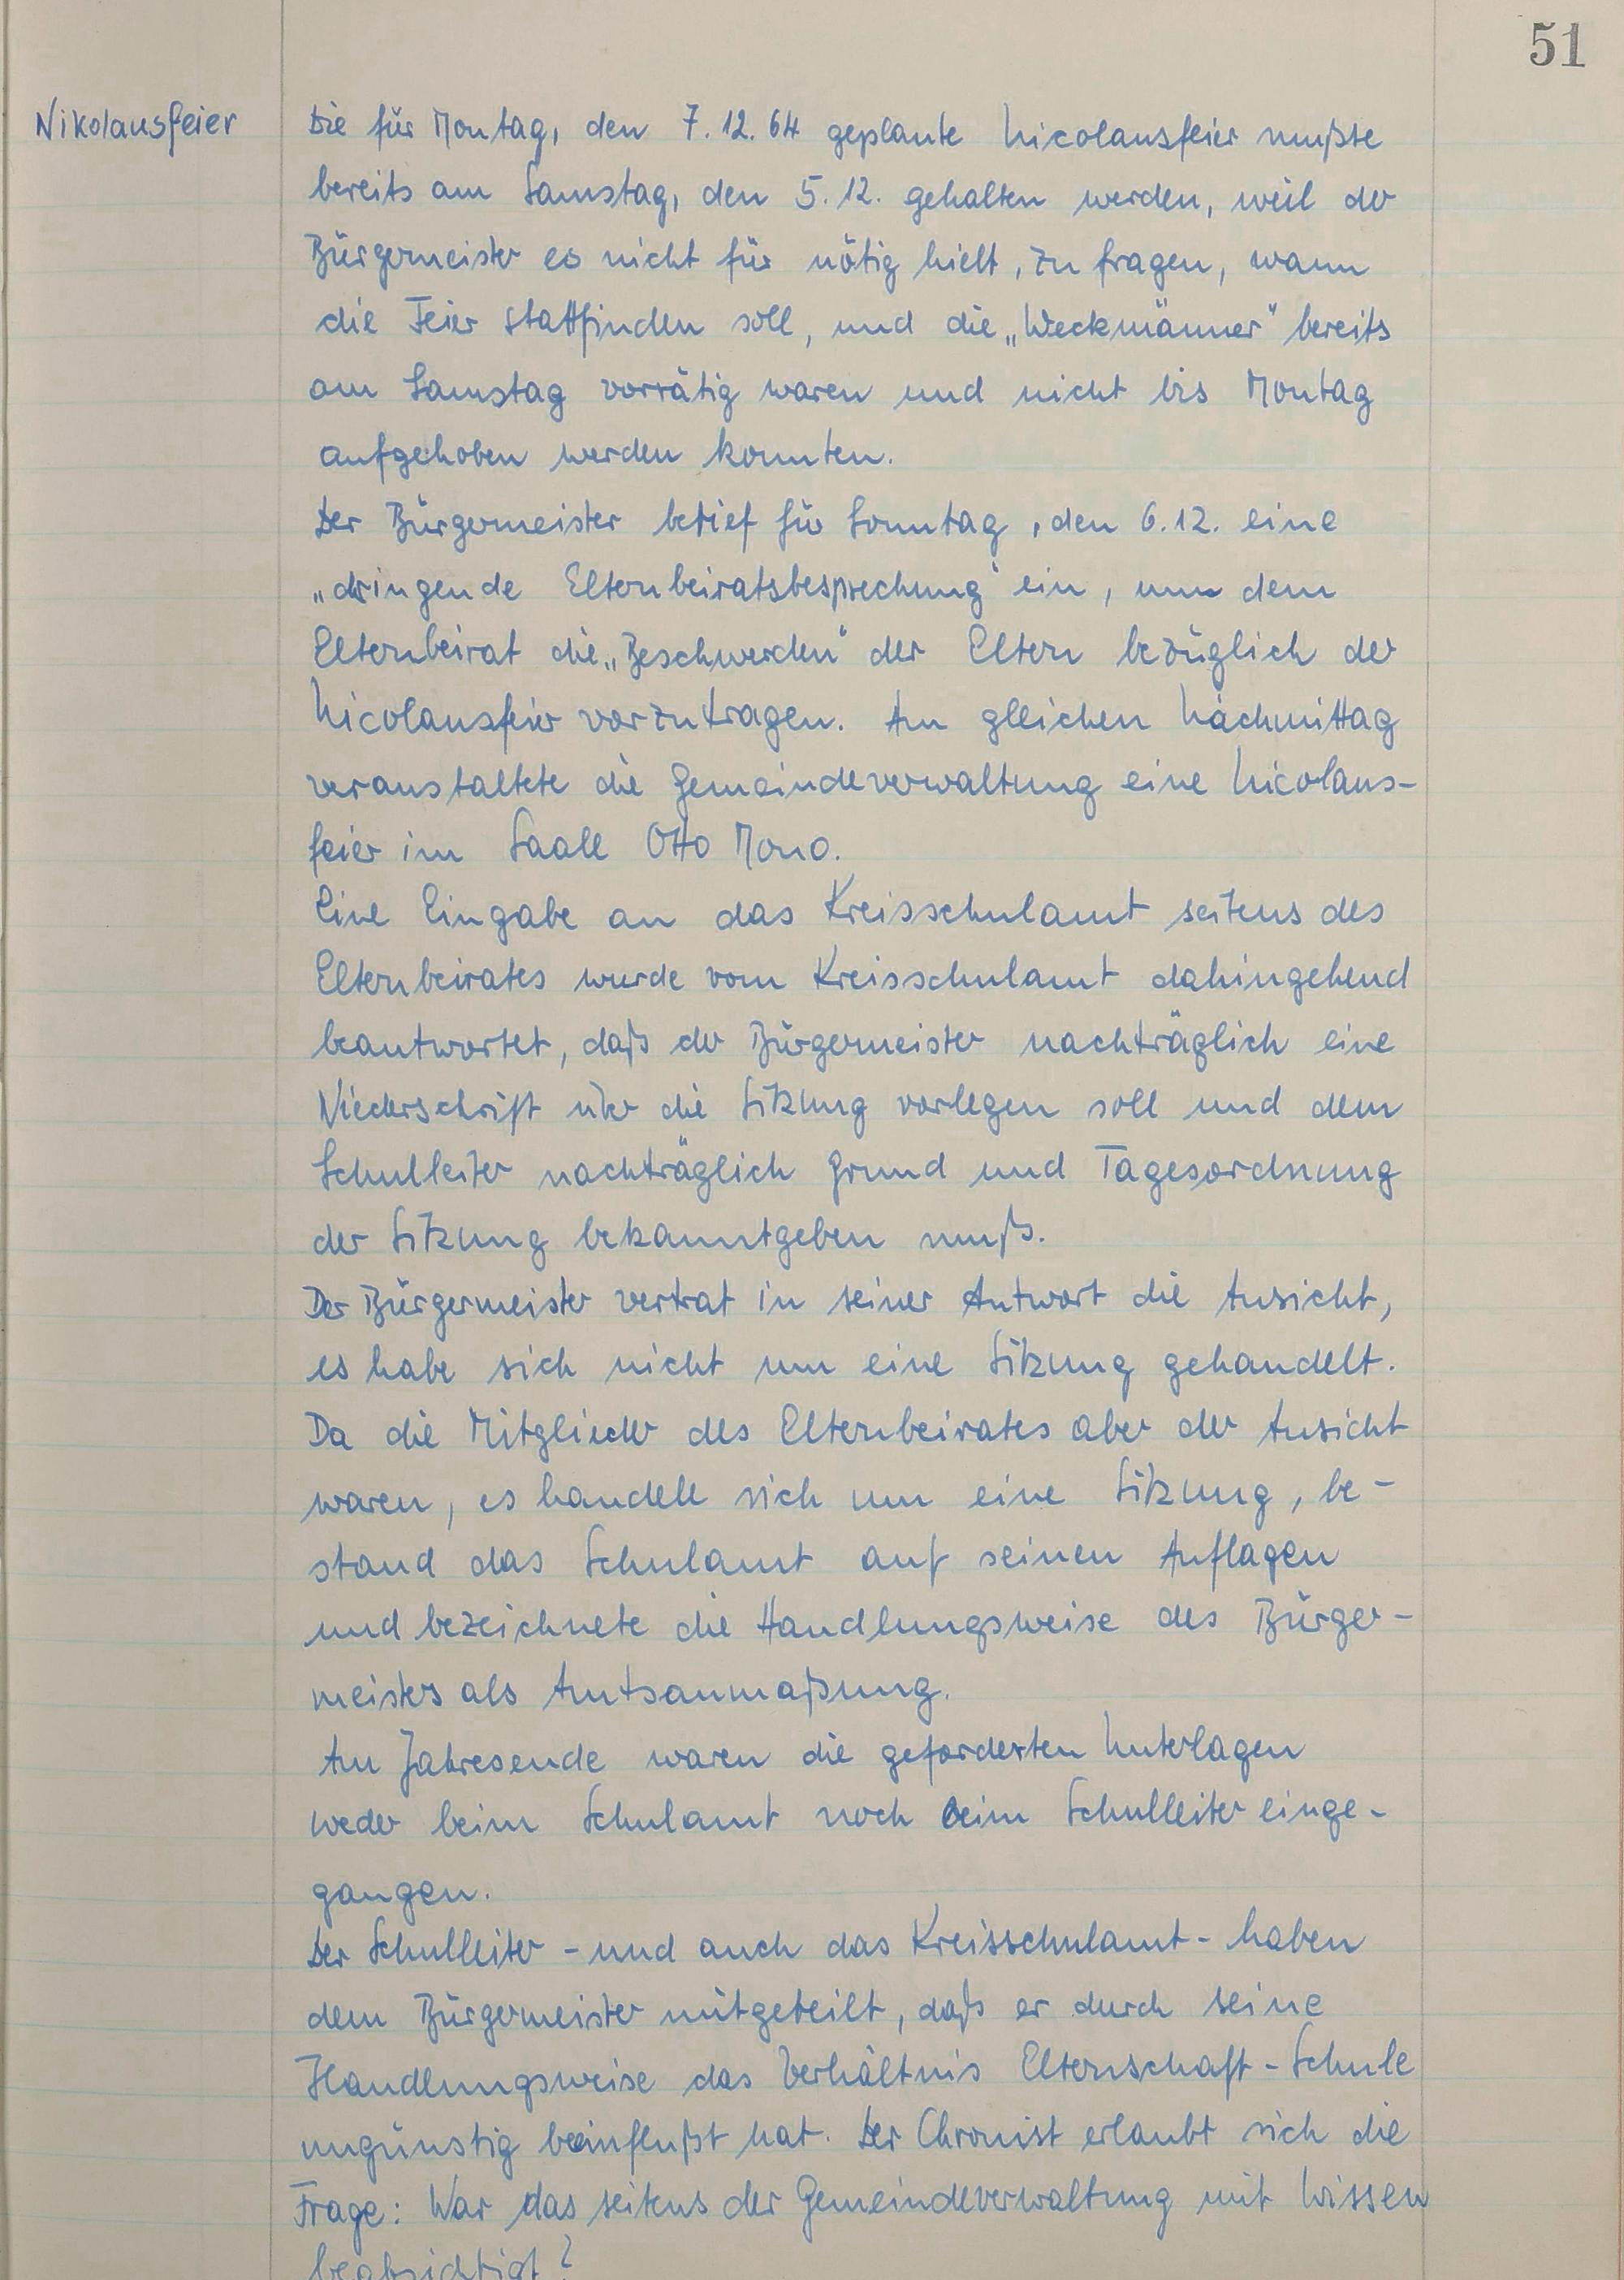 51
Nikolausfeier
Die für Montag, den 7.12.64 geplante Nicolausfeier mußte
bereits am Samstag, den 5.12. gehalten werden, weil der
Bürgermeister es nicht für nötig hielt, zu fragen, wann
die Feier stattfinden soll, und die „Weckmänner" bereits
am Samstag vorrätig waren und nicht bis Montag
aufgehoben werden konnten.
Der Bürgermeister berief für Sonntag, den 6.12. eine
„dringende Elternbeiratsbesprechung" ein, um dem
Elternbeirat die „Beschwerden" der Eltern bezüglich der
Nicolausfeier vorzutragen. Am gleichen Nachmittag
veranstaltete die Gemeindeverwaltung eine Nicolaus-
feier im Saale Otto Mono.
Eine Eingabe an das Kreisschulamt seitens des
Elternbeirates wurde vom Kreisschulamt dahingehend
beantwortet, daß der Bürgermeister nachträglich eine
Niederschrift über die Sitzung vorlegen soll und dem
Schulleiter nachträglich Grund und Tagesordnung
der Sitzung bekanntgeben muß.
Der Bürgermeister vertrat in seiner Antwort die Ansicht,
es habe sich nicht um eine Sitzung gehandelt.
Da die Mitglieder des Elternbeirates aber der Ansicht
waren, es handele sich um eine Sitzung, be-
stand das Schulamt auf seinen Auflagen
und bezeichnete die Handlungsweise des Bürger-
meisters als Amtsanmaßung.
Am Jahresende waren die geforderten Unterlagen
weder beim Schulamt noch beim Schulleiter einge-
gangen.
Der Schulleiter - und auch das Kreisschulamt - haben
dem Bürgermeister mitgeteilt, daß er durch seine
Handlungsweise das Verhältnis Elternschaft - Schule
ungünstig beeinflußt hat. Der Chronist erlaubt sich die
Frage: War das seitens der Gemeindeverwaltung mit Wissen
beabsichtigt?